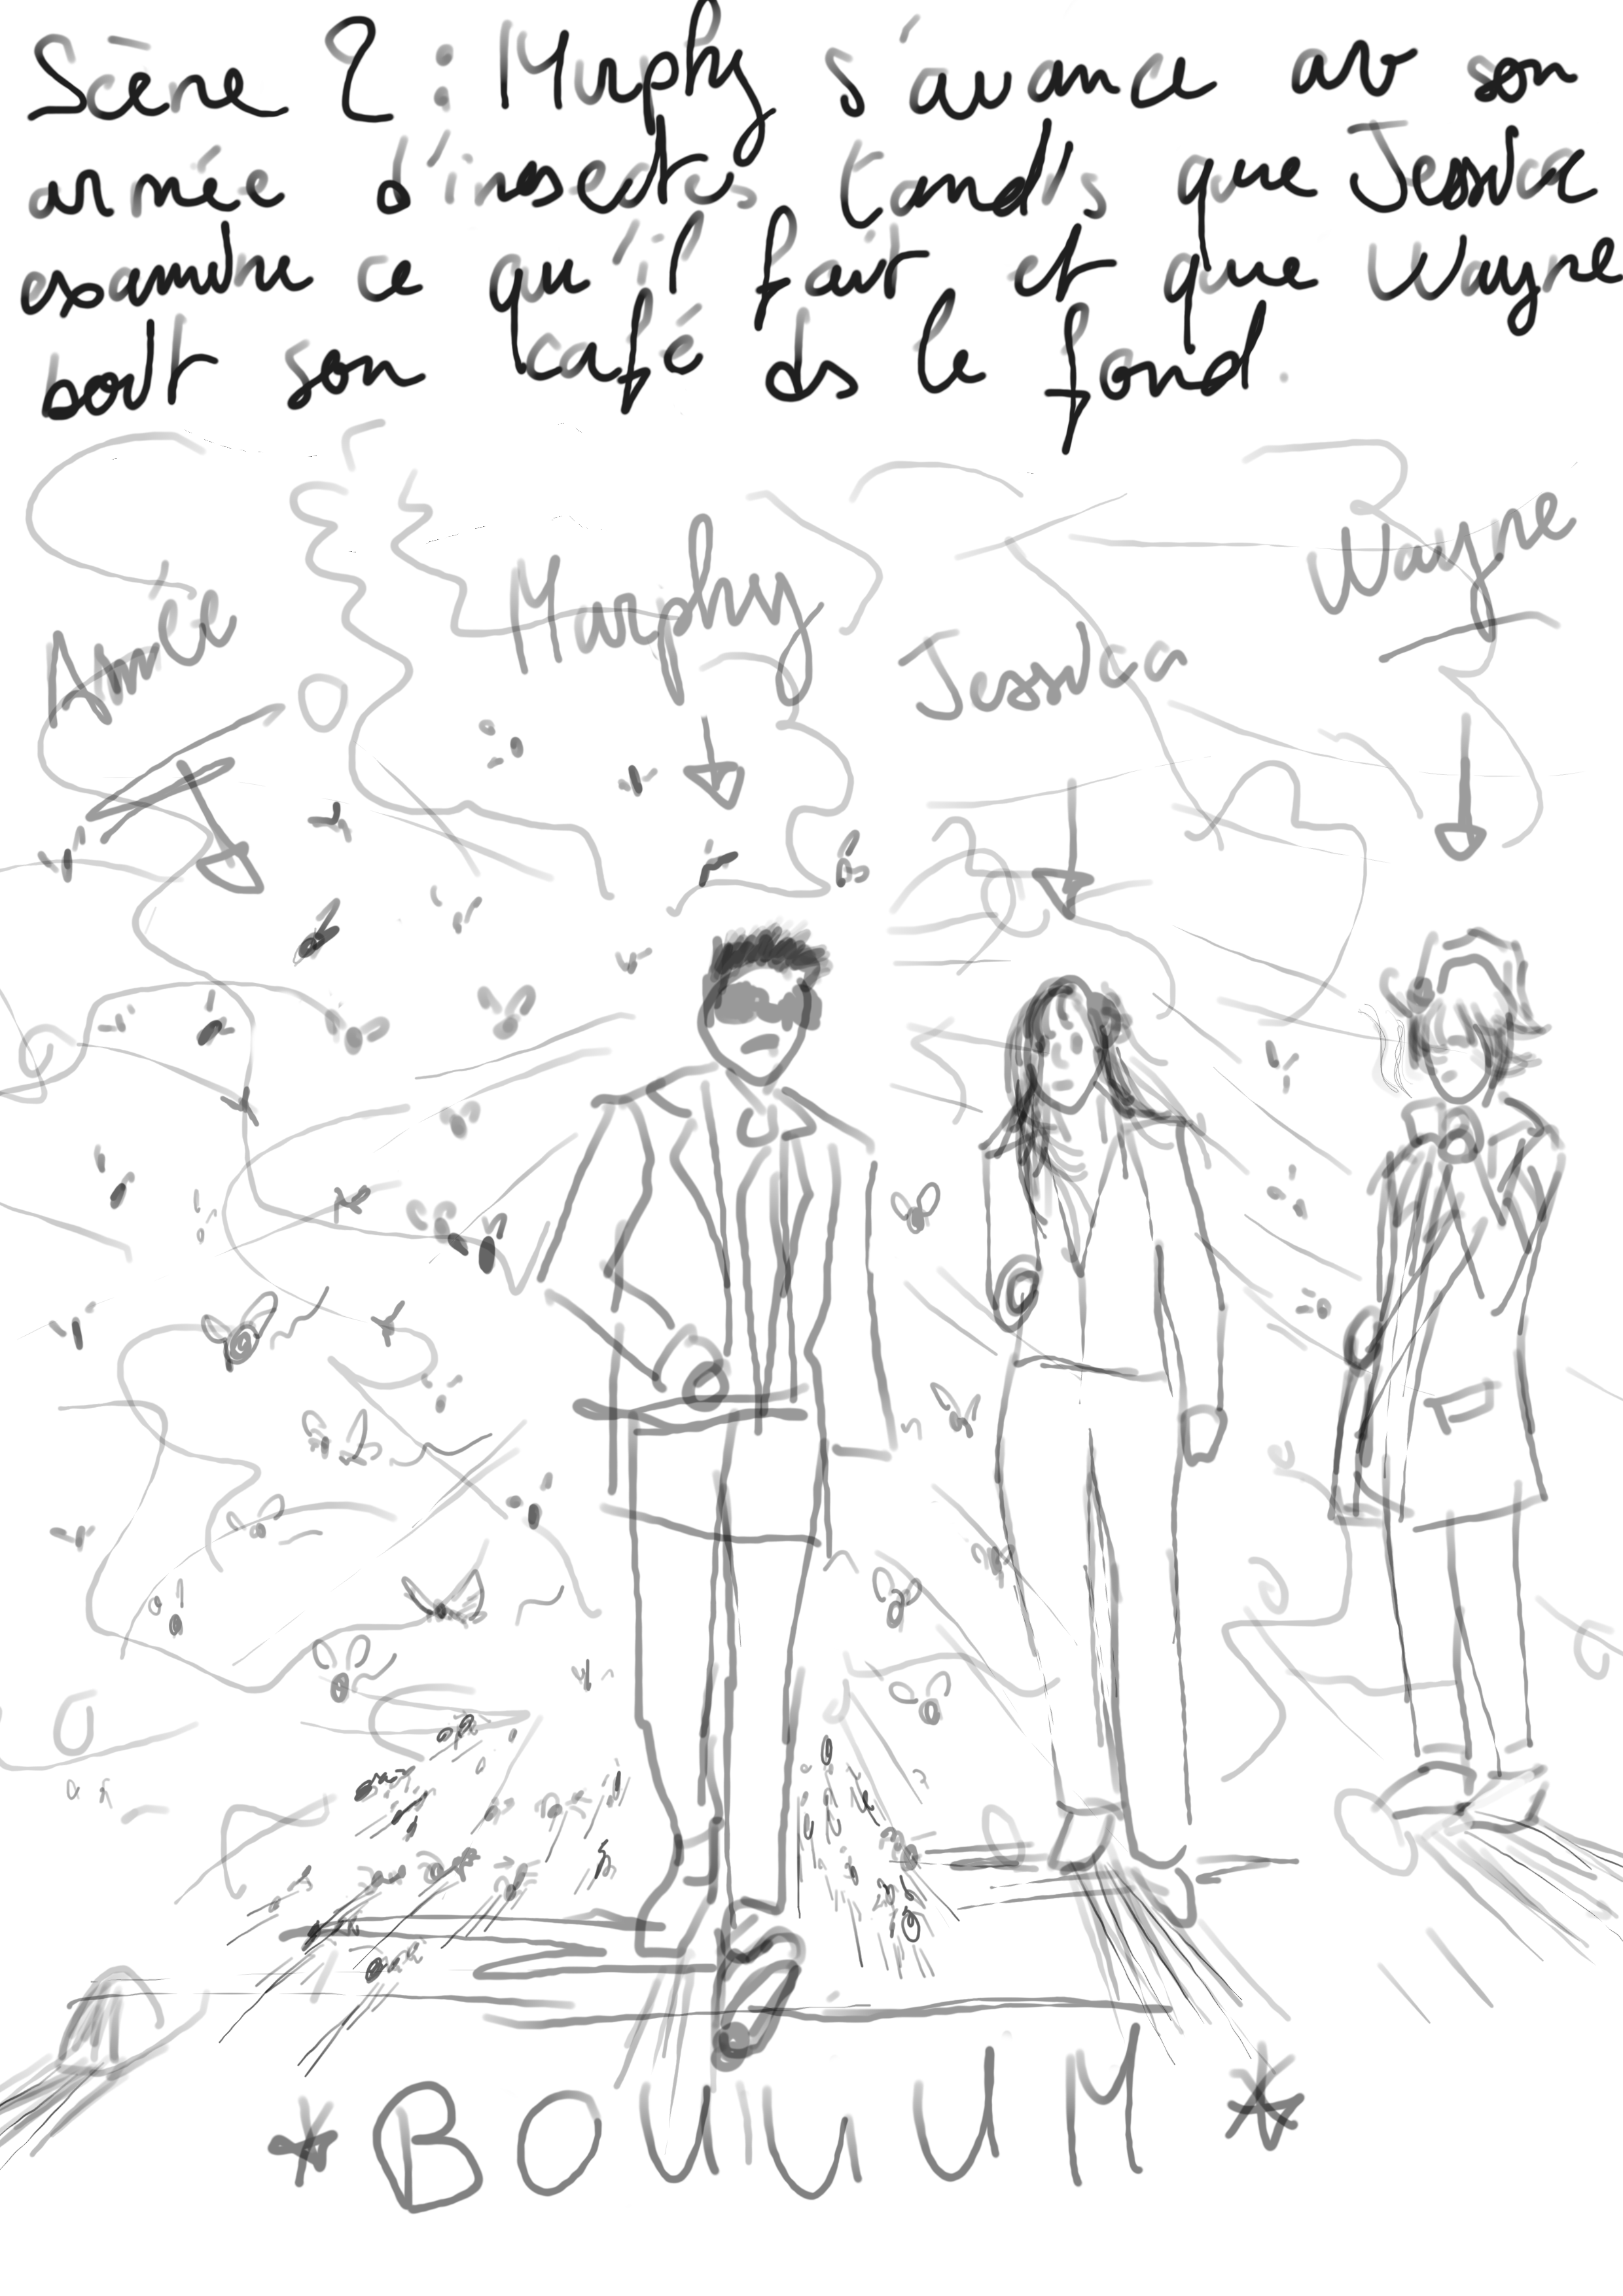 Scène 2 : Murphy s'avance av son
armée d'insectes tandis que Jessica
examine ce qu'il fait et que Wayne
boit son café ds le fond.
Armée
Murphy
Jessica
Wayne
* BOUUUM *